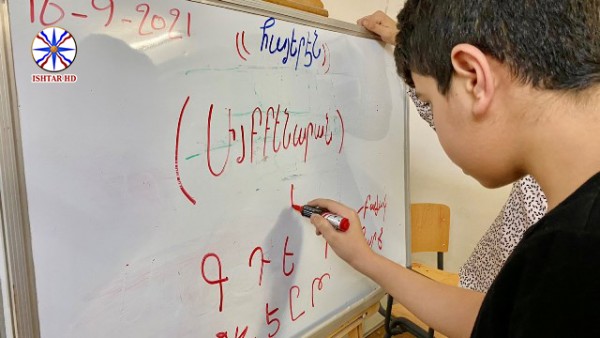 16-9-2021
ISHTAR HD
(( հայերէն ))
(Այբբէնարան)
գ դ ե
զ է ը թ